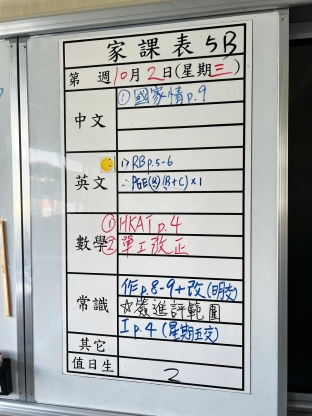 家課表 5B
第 週 10月2日(星期三)
中文
① 國家情 p.9
英文
1) RB p.5-6
PGE(8) (B+C) x1
數學
① HKAT p.4
② 單工改正
常識
作 p.8-9+改(明交)
☆簽進評範圍
I p.4 (星期五交)
其它
值日生
2